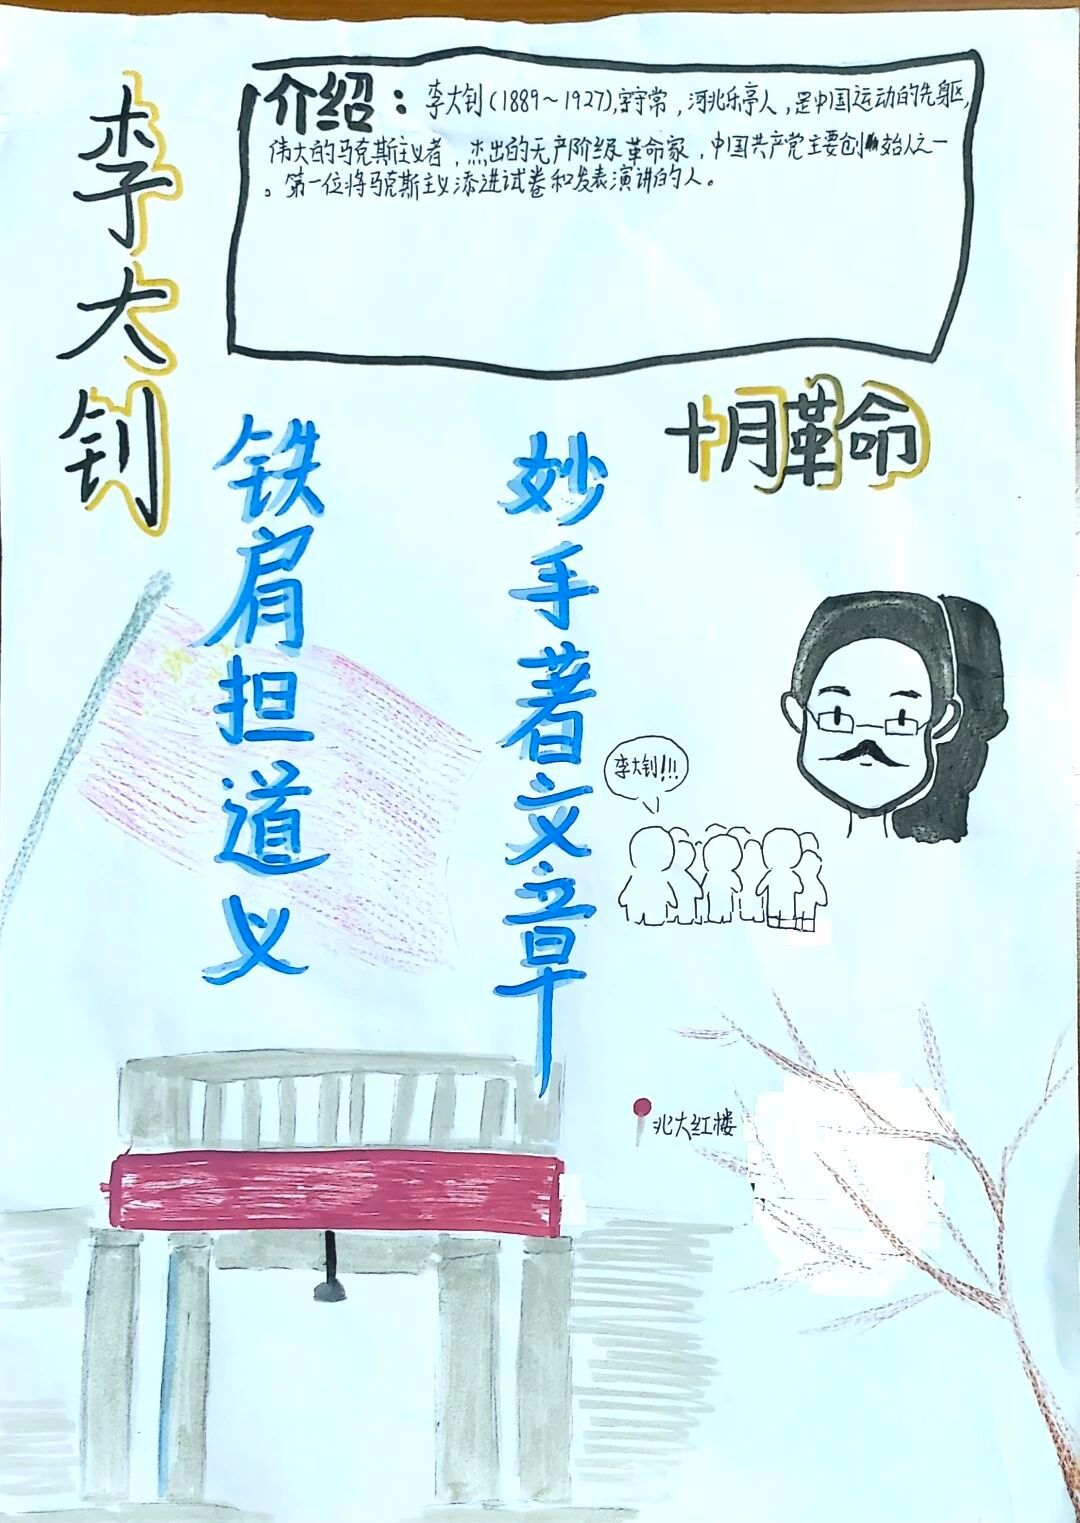 李大钊
介绍：李大钊(1889～1927),字守常，河北乐亭人，是中国运动的先驱,
伟大的马克斯主义者，杰出的无产阶级革命家，中国共产党主要创始人之一
。第一位将马克斯主义添进试卷和发表演讲的人。
十月革命
铁肩担道义
妙手著文章
李大钊!!!
北大红楼